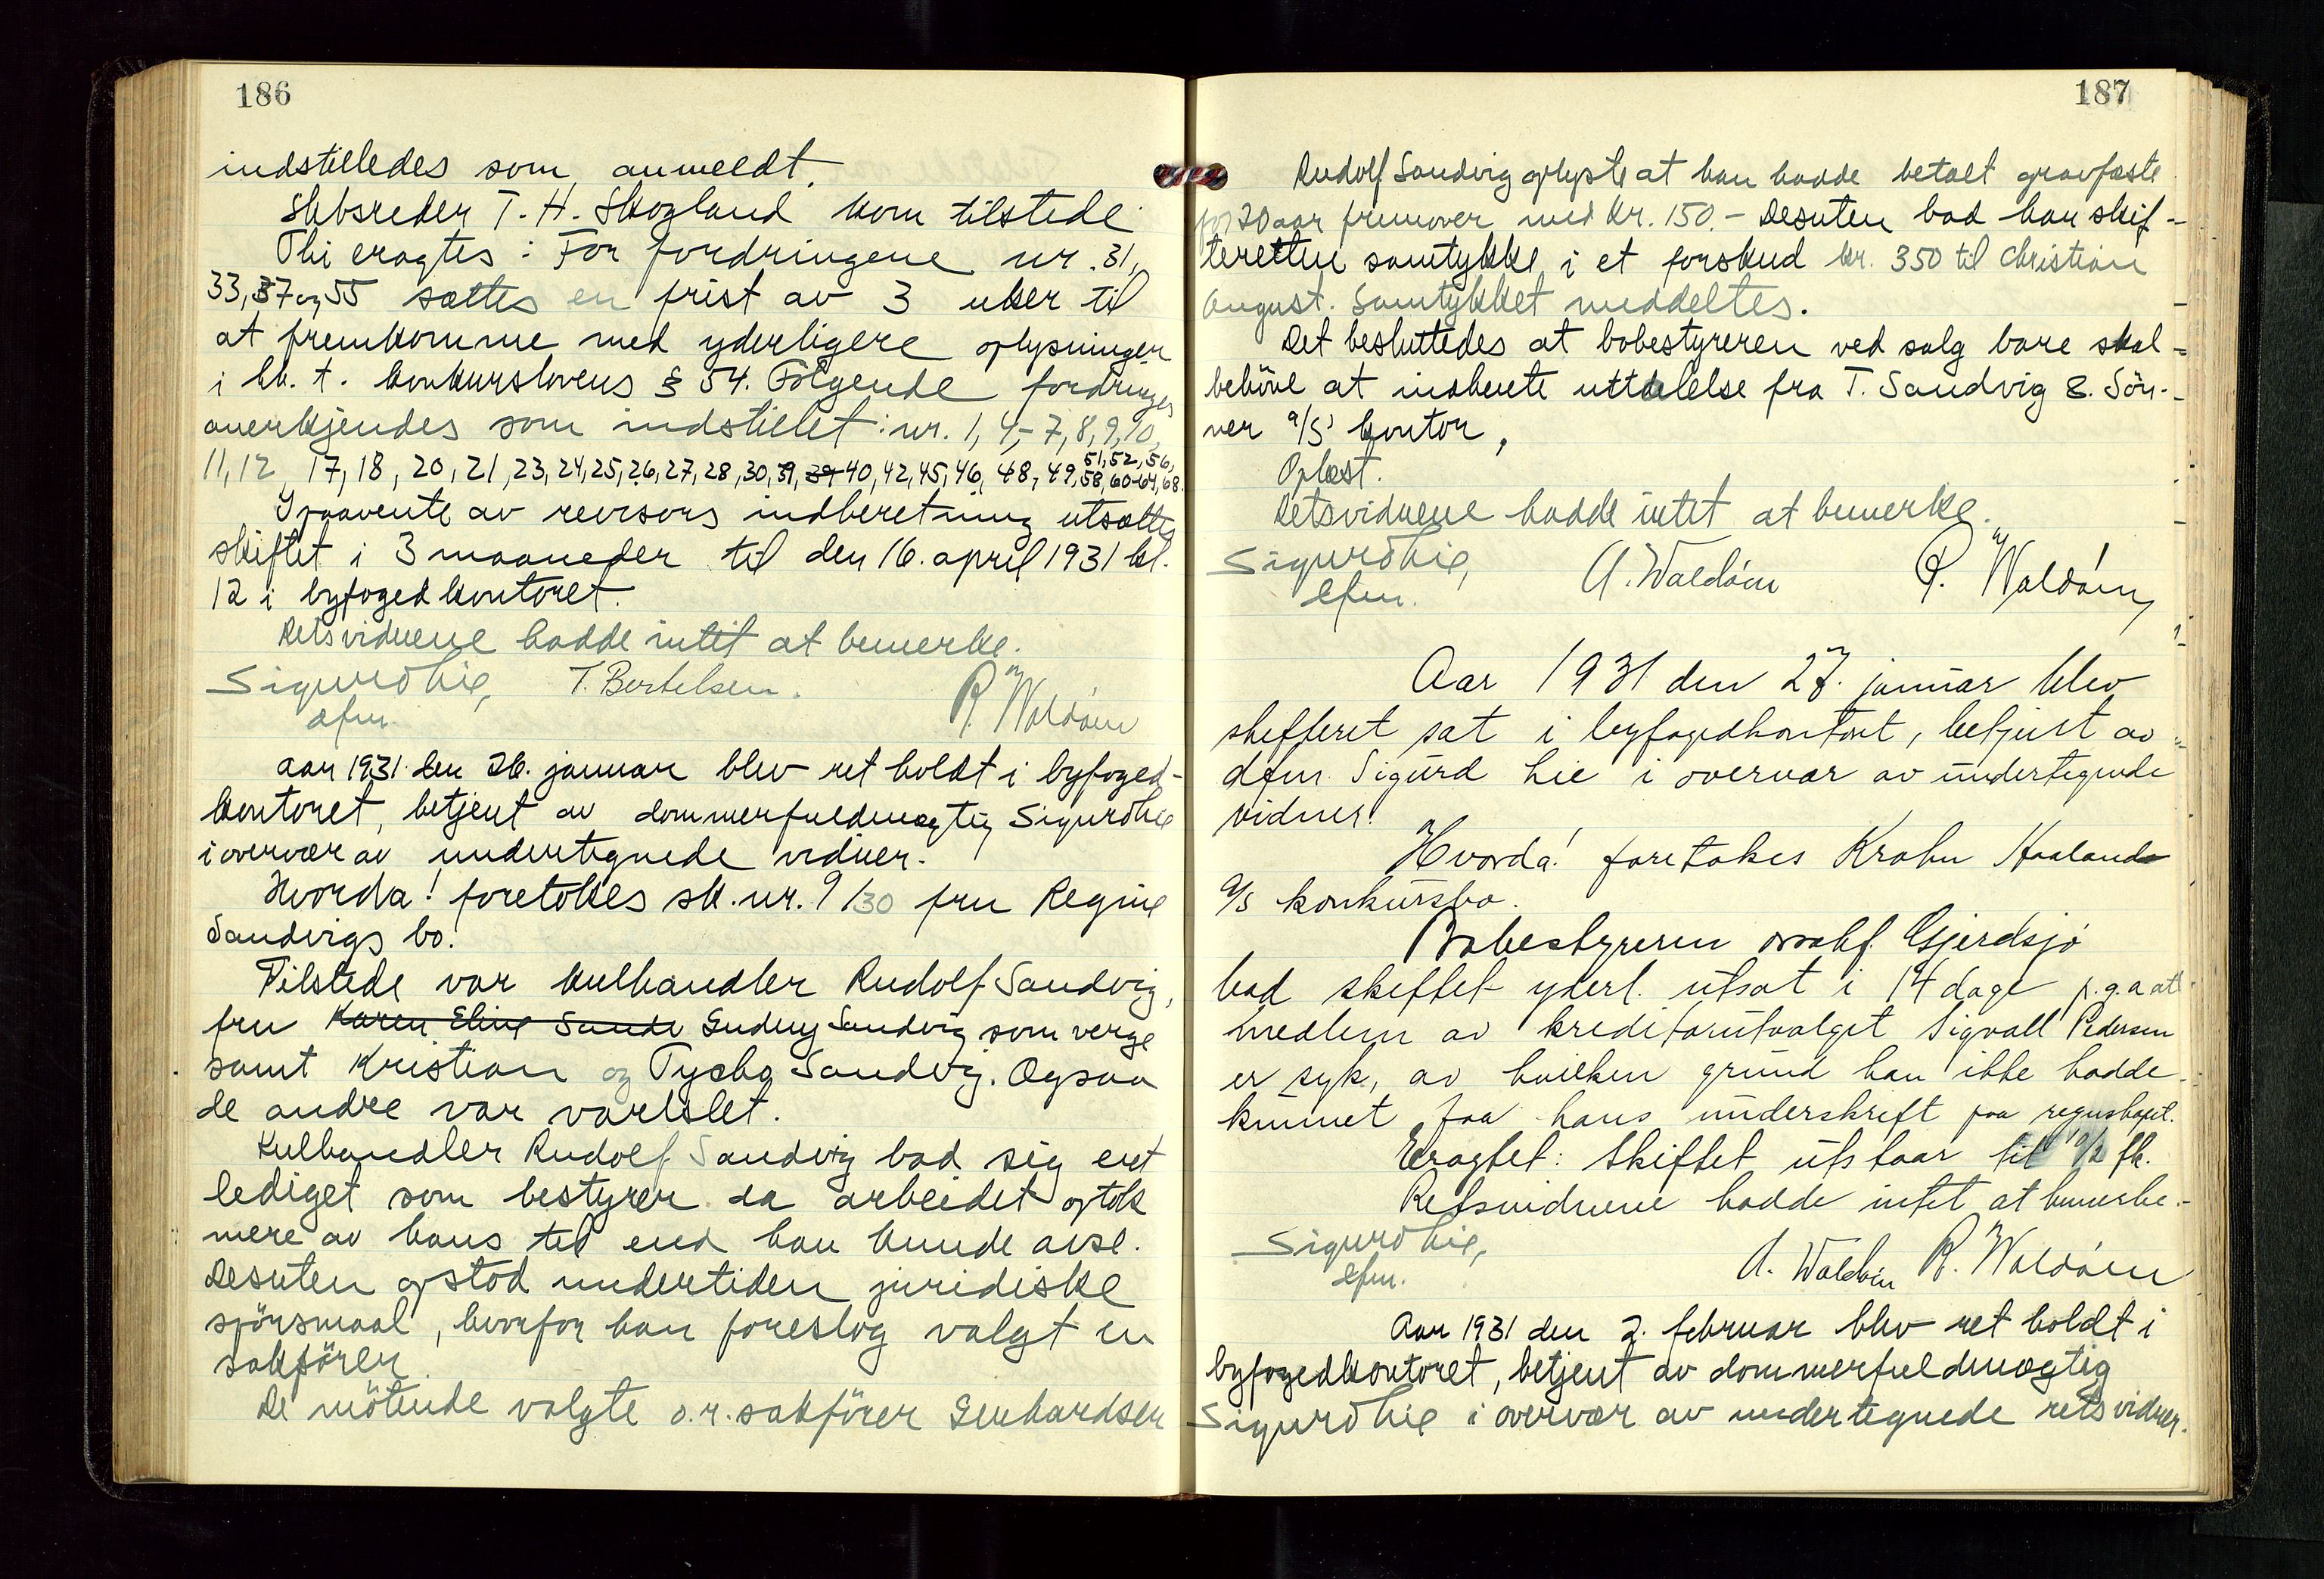 186
indstilledes som anmeldt.
Skibsreder T. H. Skogland kom tilstede
Thi eragtes: For fordringene nr. 31,
33, 37 og 55 sættes en frist av 3 uker til
at fremkomme med yderligere oplysninger
i hh. t. konkurslovens § 54. Følgende fordringer
anerkjendes som indstillet: nr. 1, 4,- 7, 8, 9, 10,
11, 12, 17, 18, 20, 21, 23, 24, 25, 26, 27, 28, 30, 39, 39 40, 42, 45, 46, 48, 49, 51, 52, 56, 58, 60-64, 68.
I paavente av revisors indberetning utsættes
skiftet i 3 maaneder til den 16. april 1931 kl.
12 i byfogedkontoret.
Retsvidnene hadde intet at bemerke.
Sigurd Lie, T. Bertelsen. R. Waldám
dfm.
Aar 1931 den 26. januar blev ret holdt i byfoged-
kontoret, betjent av dommerfuldmægtig Sigurd Lie
i overvær av undertegnede vidner.
Hvorda! foretokes sk. nr. 9/30 fru Regine
Sandvigs bo.
Tilstede var kulhandler Rudolf Sandvig,
fru Karen Eline Sande Gudny Sandvig som verge
samt Kristian og Tycho Sandvig. Ogsaa
de andre var varslet.
Kulhandler Rudolf Sandvig bad sig ent
lediget som bestyrer da arbeidet optok
mere av hans tid end han kunde avse.
Desuten opstod undertiden juridiske
spörsmaal, hvorfor han foreslog valgt en
sakförer.
De mötende valgte o.r. sakförer Genhardsen
187
Rudolf Sandvig oplyste at han hadde betalt gravfæste
for 20 aar fremover med kr. 150.- Desuten bad han skif-
teretten samtykke i et forskud kr. 350 til Christian
August. Samtykket meddeltes.
Det besluttedes at bobestyreren ved salg bare skal
behöve at indhente uttalelse fra T. Sandvig & Sön-
ner a/s' kontor.
Oplæst.
Retsvidnene hadde intet at bemerke.
Sigurd Lie, A. Waldám R. Waldám
dfm.
Aar 1931 den 27. januar blev
skifteret sat i byfogedkontoret, betjent av
dfm. Sigurd Lie i overvær av undertegnede
vidner.
Hvorda! foretokes Krohn Haaland
a/s konkursbo.
Bobestyreren o.r.sakf. Gjerdsjö
bad skiftet yderl. utsat i 14 dage p.g.a at
medlem av kreditorutvalget Sigvall Pedersen
er syk, av hvilken grund han ikke hadde
kunnet faa hans underskrift paa regnskapet.
Eragtet: Skiftet utstaar til 10/2 fk.
Retsvidnene hadde intet at bemerke.-
Sigurd Lie, A. Waldám R. Waldám
dfm.
Aar 1931 den 2. februar blev ret holdt i
byfogedkontoret, betjent av dommerfuldmægtig
Sigurd Lie i overvær av undertegnede retsvidner.